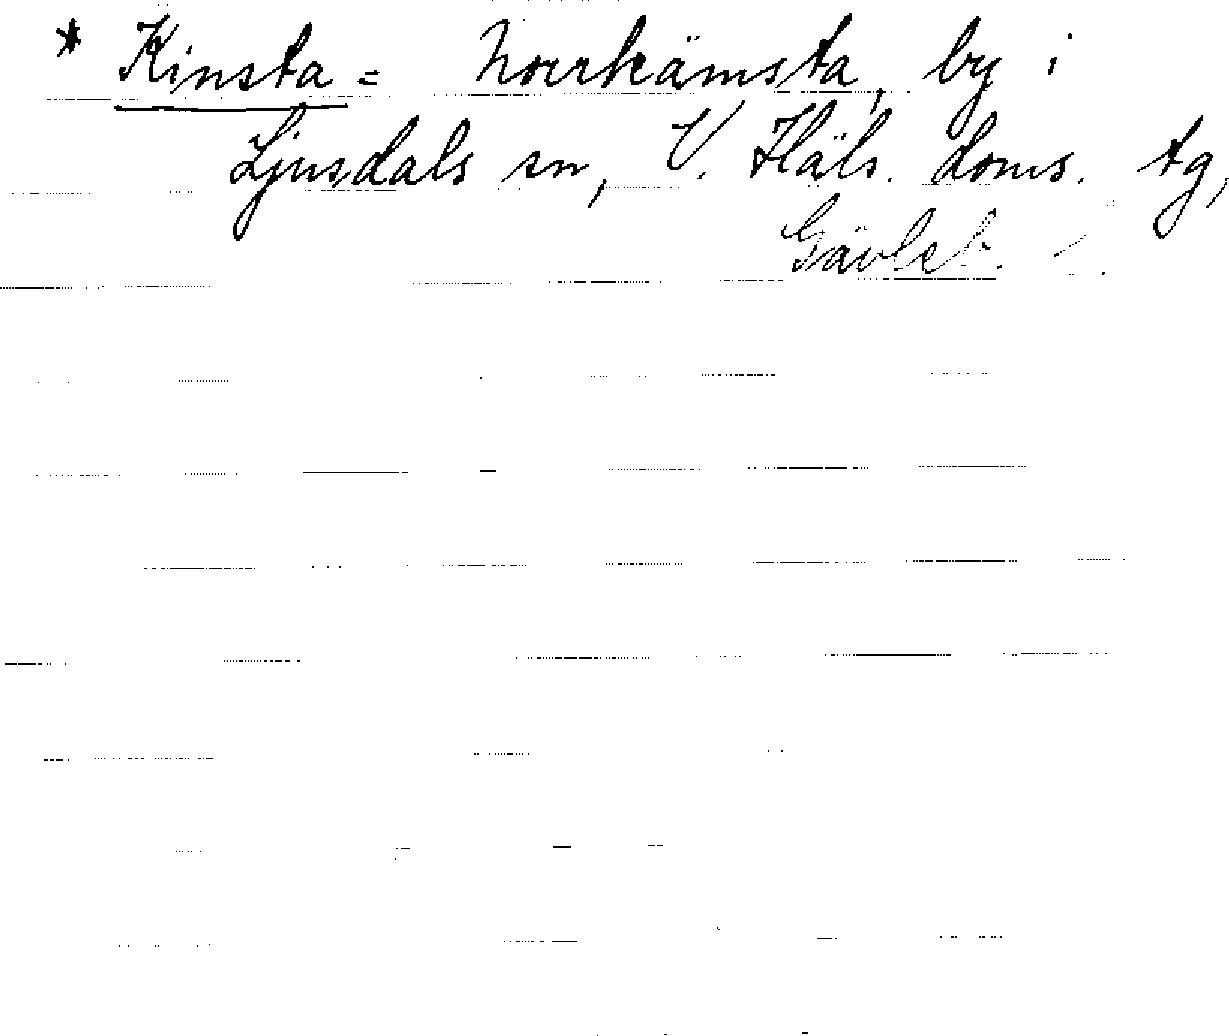 * Kinsta = Norrkämsta, by i
Ljusdals sn, V. Häls. doms. tg,
Gävleb.